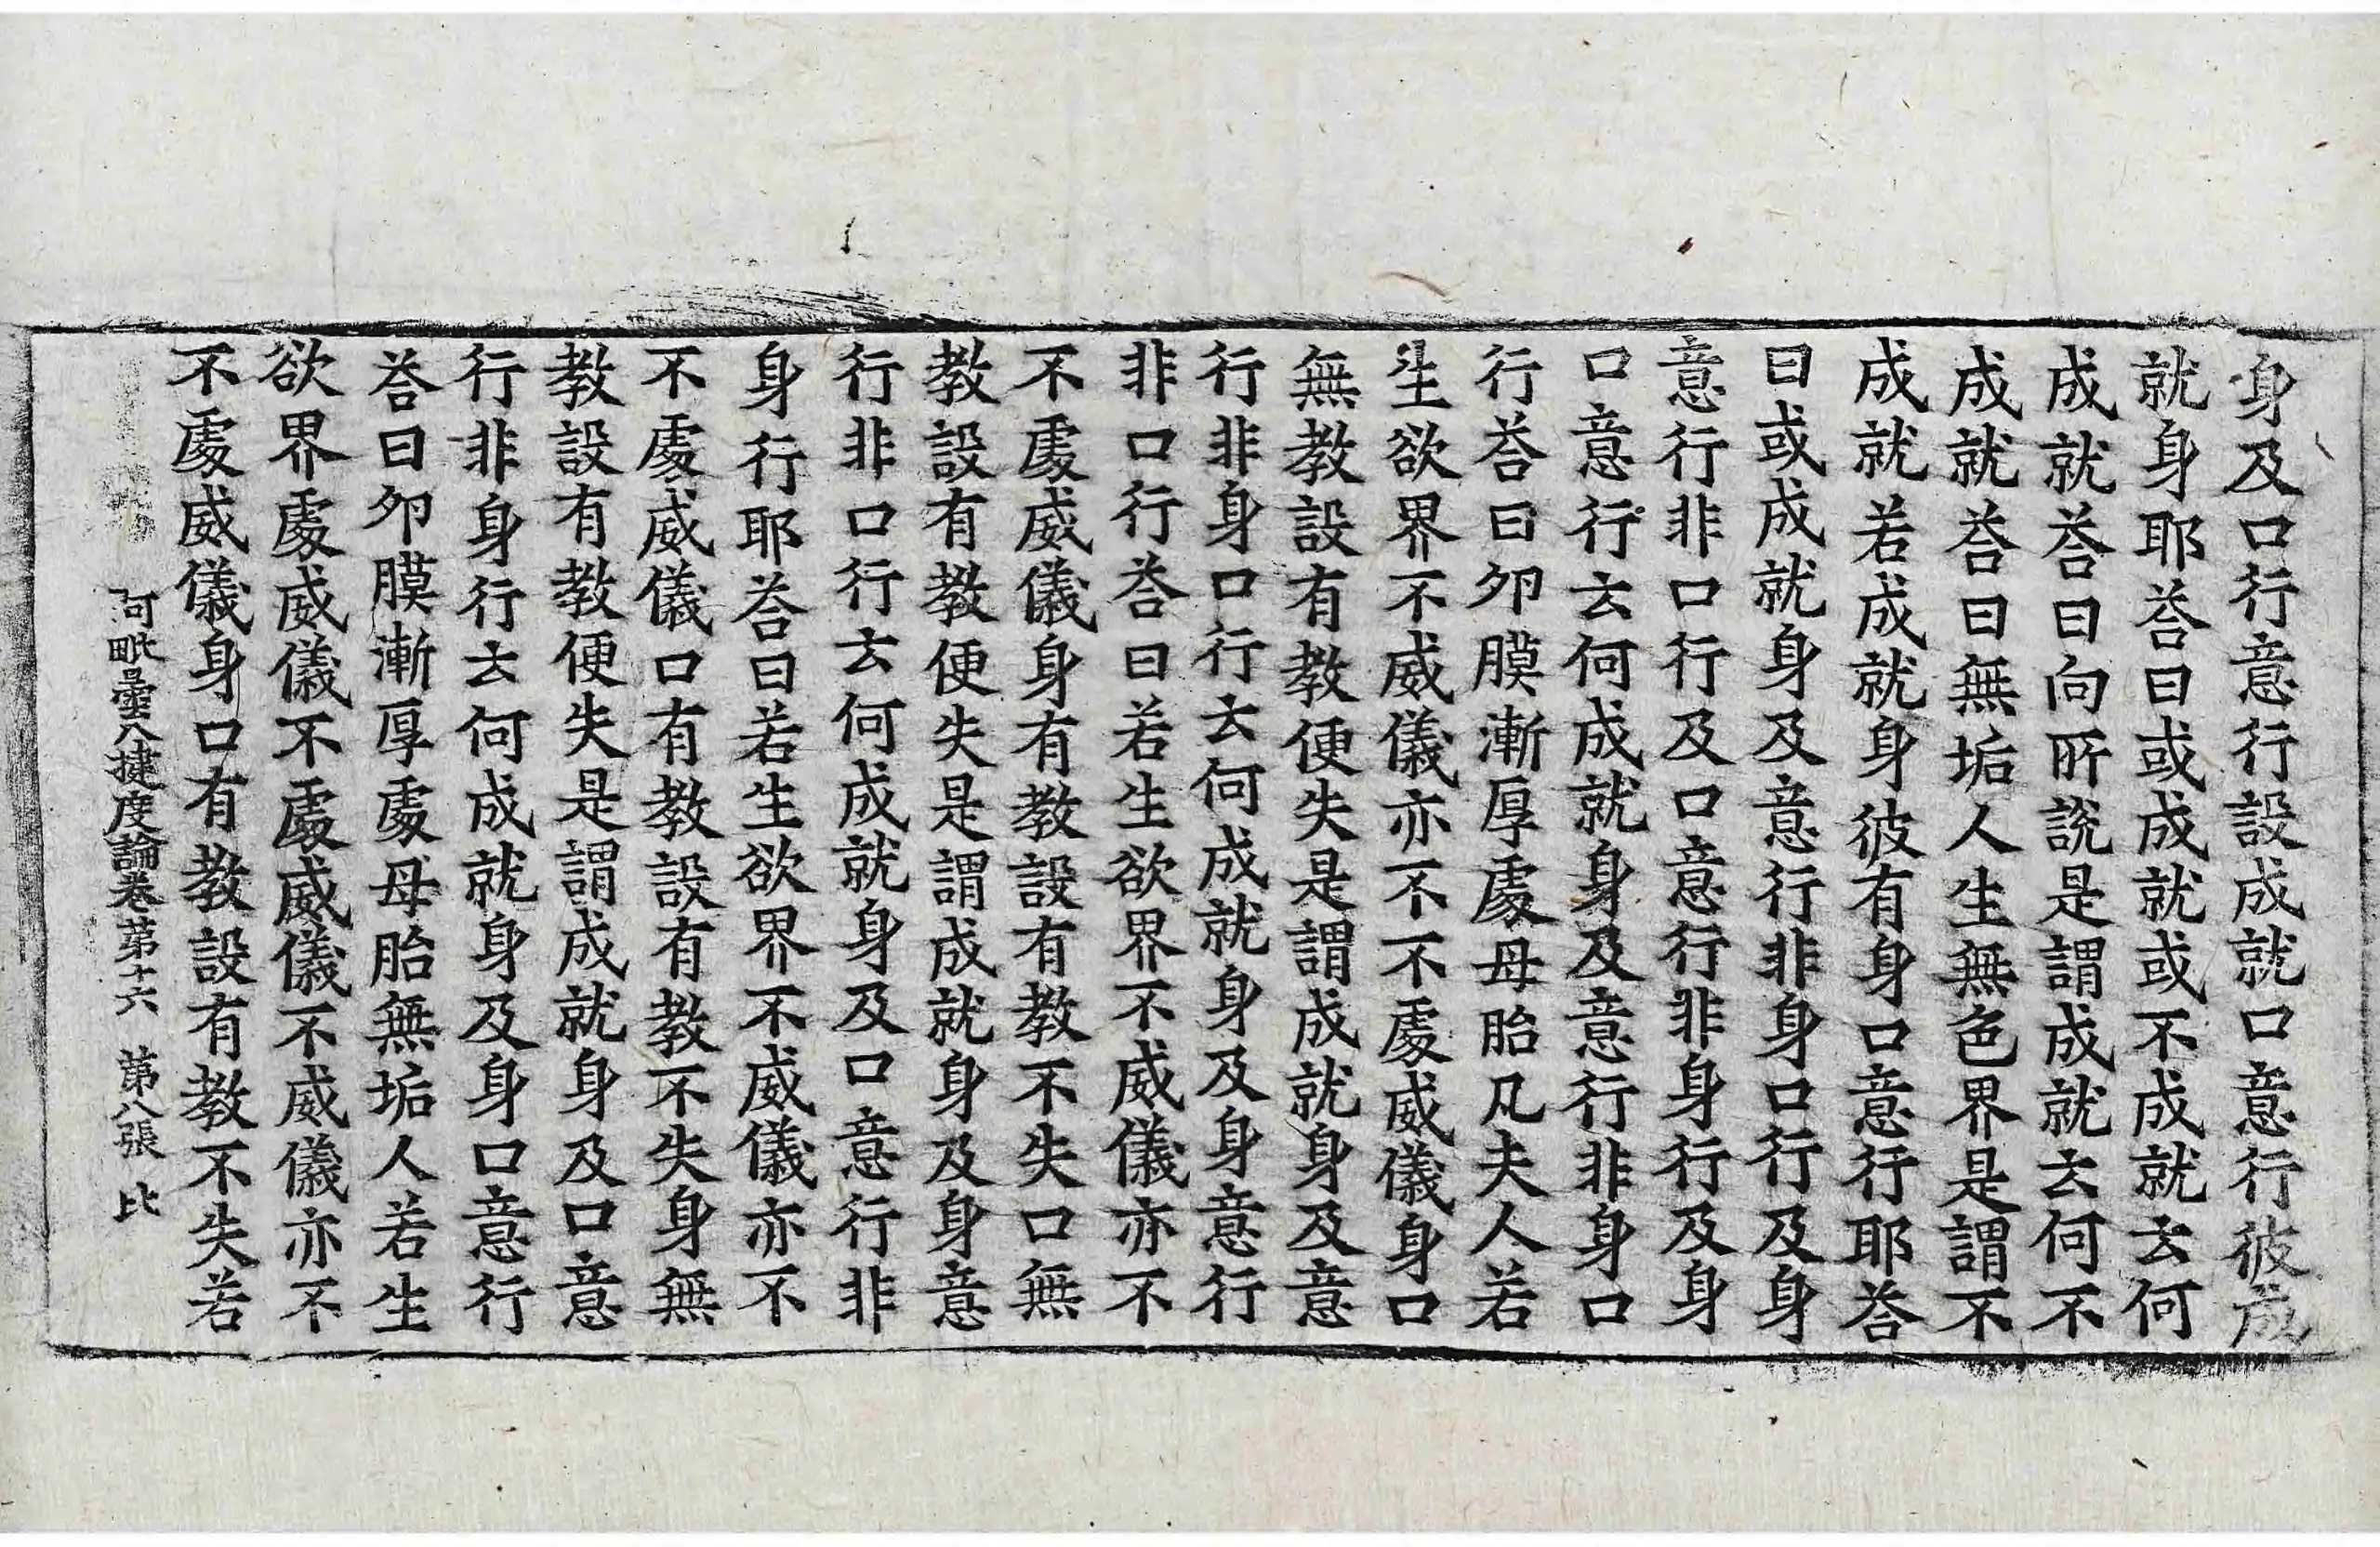 身及口行意行設成就口意行彼成
就身耶荅曰或成就或不成就云何
成就荅曰向所說是謂成就云何不
成就荅曰無垢人生無色界是謂不
成就若成就身彼有身口意行耶荅
曰或成就身及意行非身口行及身
意行非口行及口意行非身行及身
口意行云何成就身及意行非身口
行荅曰卵膜漸厚處母胎凡夫人若
生欲界不威儀亦不不處威儀身口
無教設有教便失是謂成就身及意
行非身口行云何成就身及身意行
非口行荅曰若生欲界不威儀亦不
不處威儀身有教設有教不失口無
教設有教便失是謂成就身及身意
行非口行云何成就身及口意行非
身行耶荅曰若生欲界不威儀亦不
不處威儀口有教設有教不失身無
教設有教便失是謂成就身及口意
行非身行云何成就身及身口意行
荅曰卵膜漸厚處母胎無垢人若生
欲界處威儀不處威儀不威儀亦不
不處威儀身口有教設有教不失若
阿毗曇八揵度論卷第十六 第八張 比